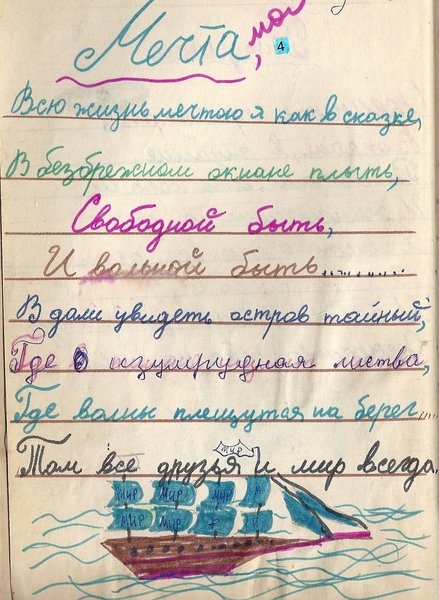 Мечта,
4
Всю жизнь мечтою я как в сказке,
В безбрежном окиане плыть,
Свободной быть,
И вольной быть..........
В дали увидеть остров тайный,
Где изумрудная листва,
Где волны плещутся на берег....
Там все друзья и мир всегда.
МИР
МИР МИР МИР
МИР МИР